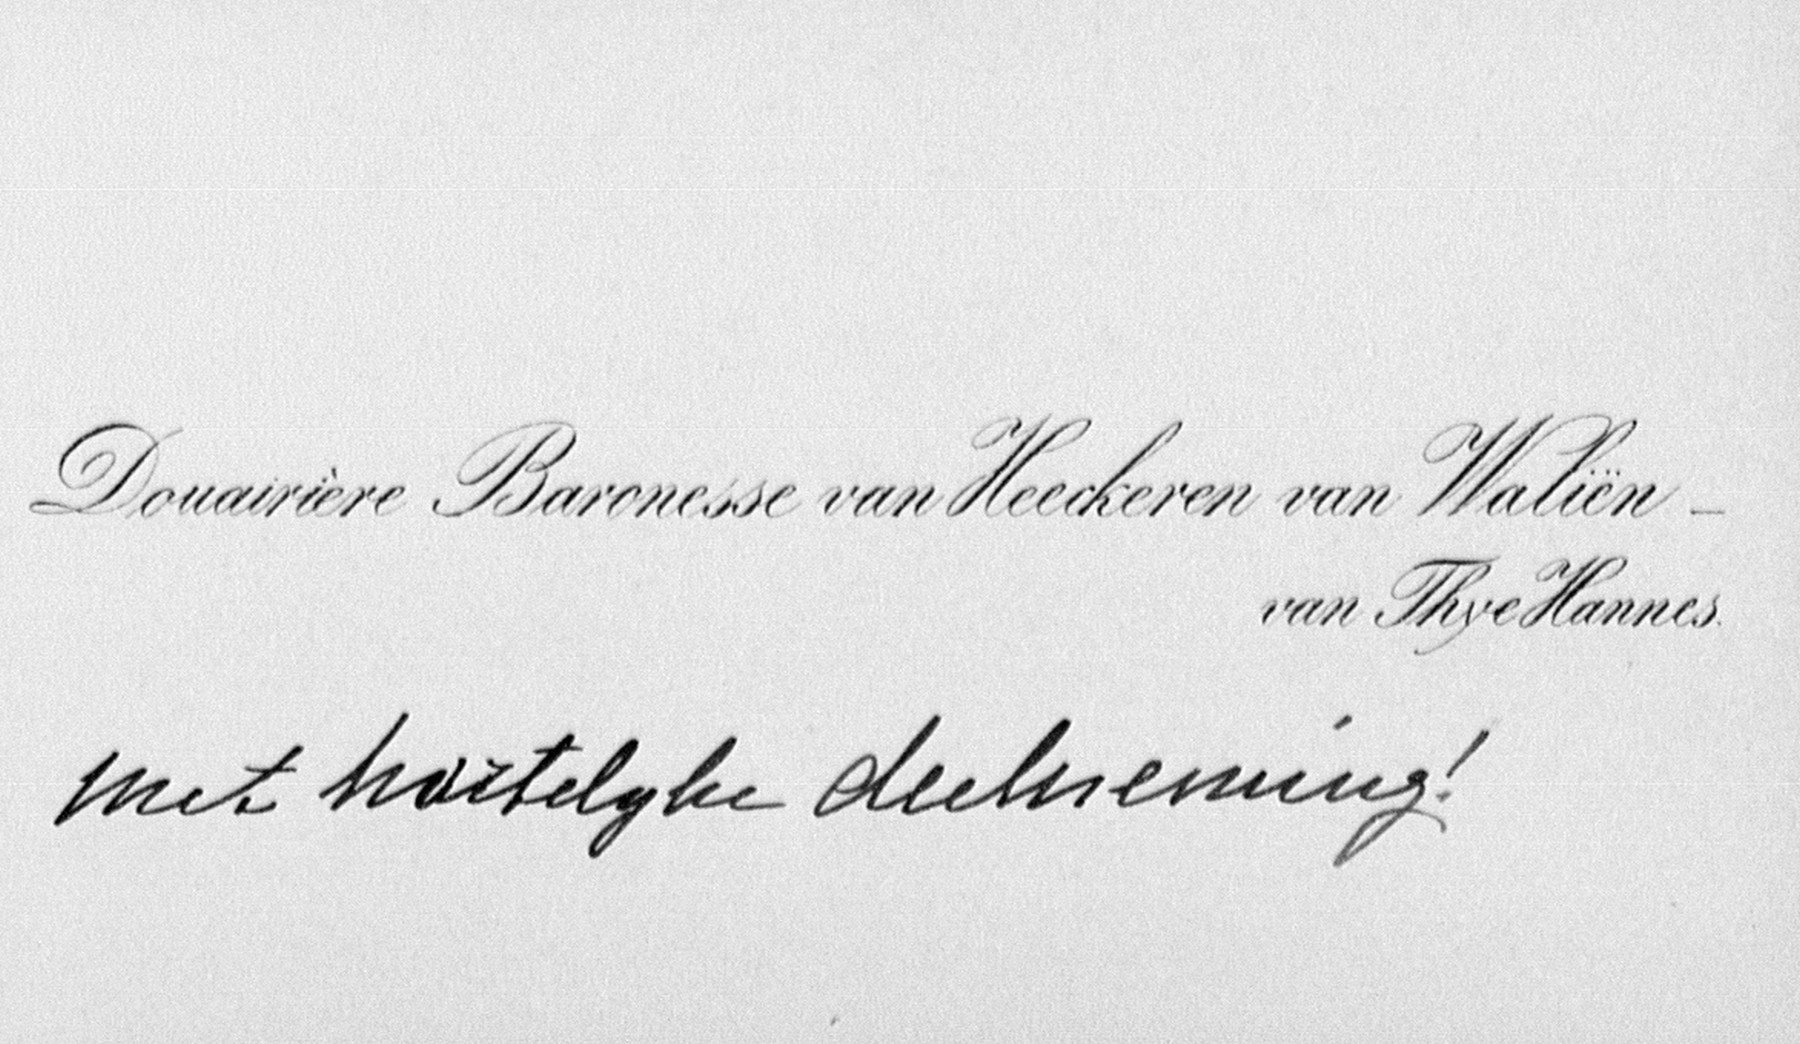 Douairière Baronesse van Heeckeren van Waliën _
van Thye Hannes.
met hartelyke deelneming!